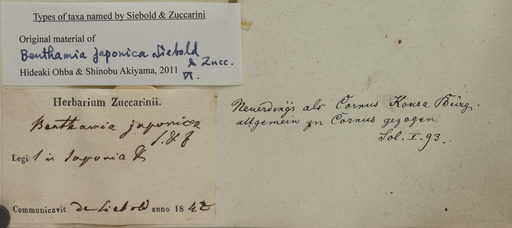 Types of taxa named by Siebold & Zuccarini
Original material of
Benthamia japonica Siebold
& Zucc.
Hideaki Ohba & Shinobu Akiyama, 2011
Herbarium Zuccarinii.
Benthamia japonica
S. & Z.
Legi in Japonia
Communicavit de Siebold anno 1842
Neuerdings als Cornus Kousa Bürg.
allgemein zu Cornus gezogen.
Sol. I. 93.